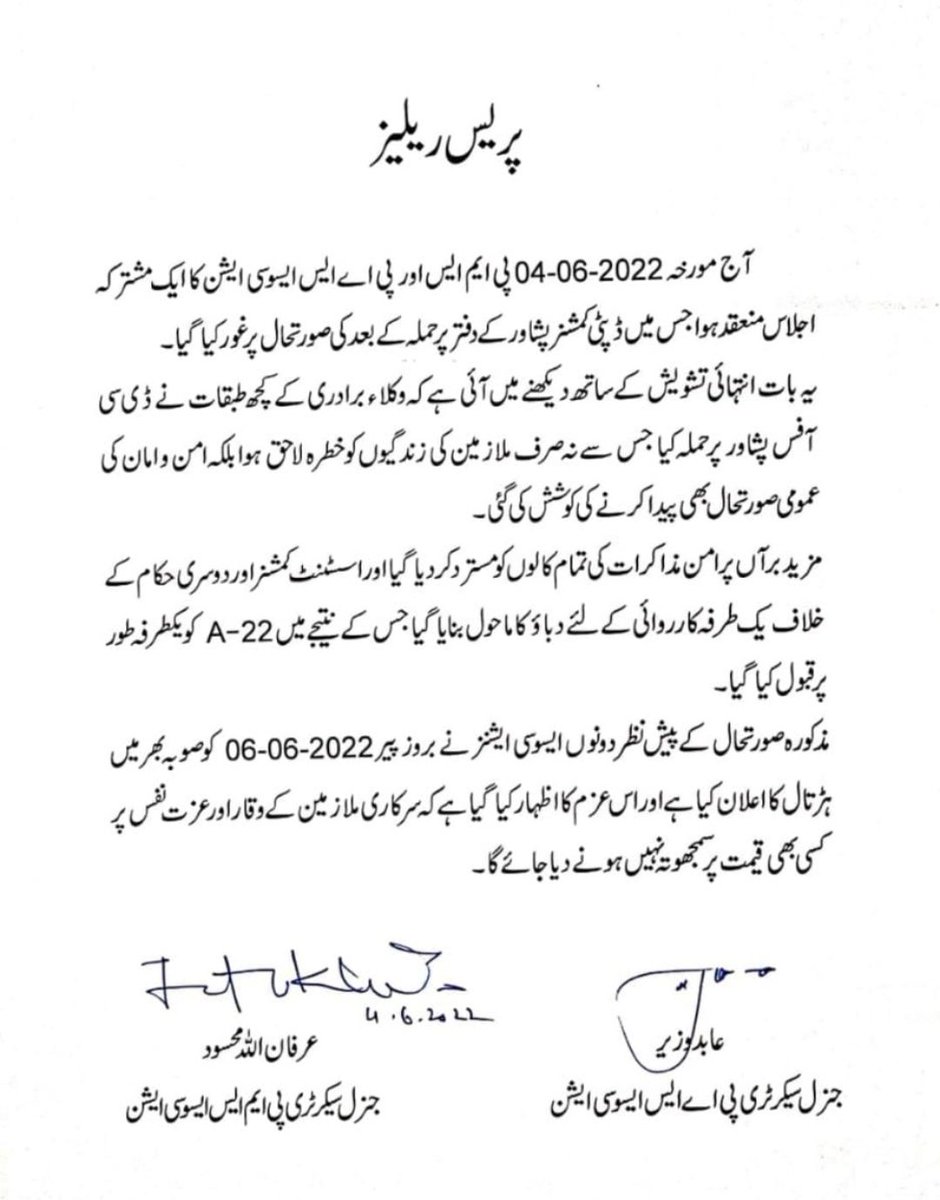 پریس ریلیز
آج مورخہ 04-06-2022 پی ایم ایس اور پی اے ایس ایسوسی ایشن کا ایک مشترکہ
اجلاس منعقد ہوا جس میں ڈپٹی کمشنر پشاور کے دفتر پر حملہ کے بعد کی صورتحال پر غور کیا گیا۔
یہ بات انتہائی تشویش کے ساتھ دیکھنے میں آئی ہے کہ وکلاء برادری کے کچھ طبقات نے ڈی سی
آفس پشاور پر حملہ کیا جس سے نہ صرف ملازمین کی زندگیوں کو خطرہ لاحق ہوا بلکہ امن و امان کی
عمومی صورتحال بھی پیدا کرنے کی کوشش کی گئی۔
مزید برآں پر امن مذاکرات کی تمام کالوں کو مسترد کر دیا گیا اور اسسٹنٹ کمشنر اور دوسری حکام کے
خلاف یک طرفہ کارروائی کے لئے دباؤ کا ماحول بنایا گیا جس کے نتیجے میں 22-A کو یکطرفہ طور
پر قبول کیا گیا۔
مذکورہ صورتحال کے پیش نظر دونوں ایسوسی ایشنز نے بروز پیر 06-06-2022 کو صوبہ بھر میں
ہڑتال کا اعلان کیا ہے اور اس عزم کا اظہار کیا گیا ہے کہ سرکاری ملازمین کے وقار اور عزت نفس پر
کسی بھی قیمت پر سمجھوتہ نہیں ہونے دیا جائے گا۔
4.6.2022
عابد وزیر
عرفان اللہ محسود
جنرل سیکرٹری پی اے ایس ایسوسی ایشن
جنرل سیکرٹری پی ایم ایس ایسوسی ایشن